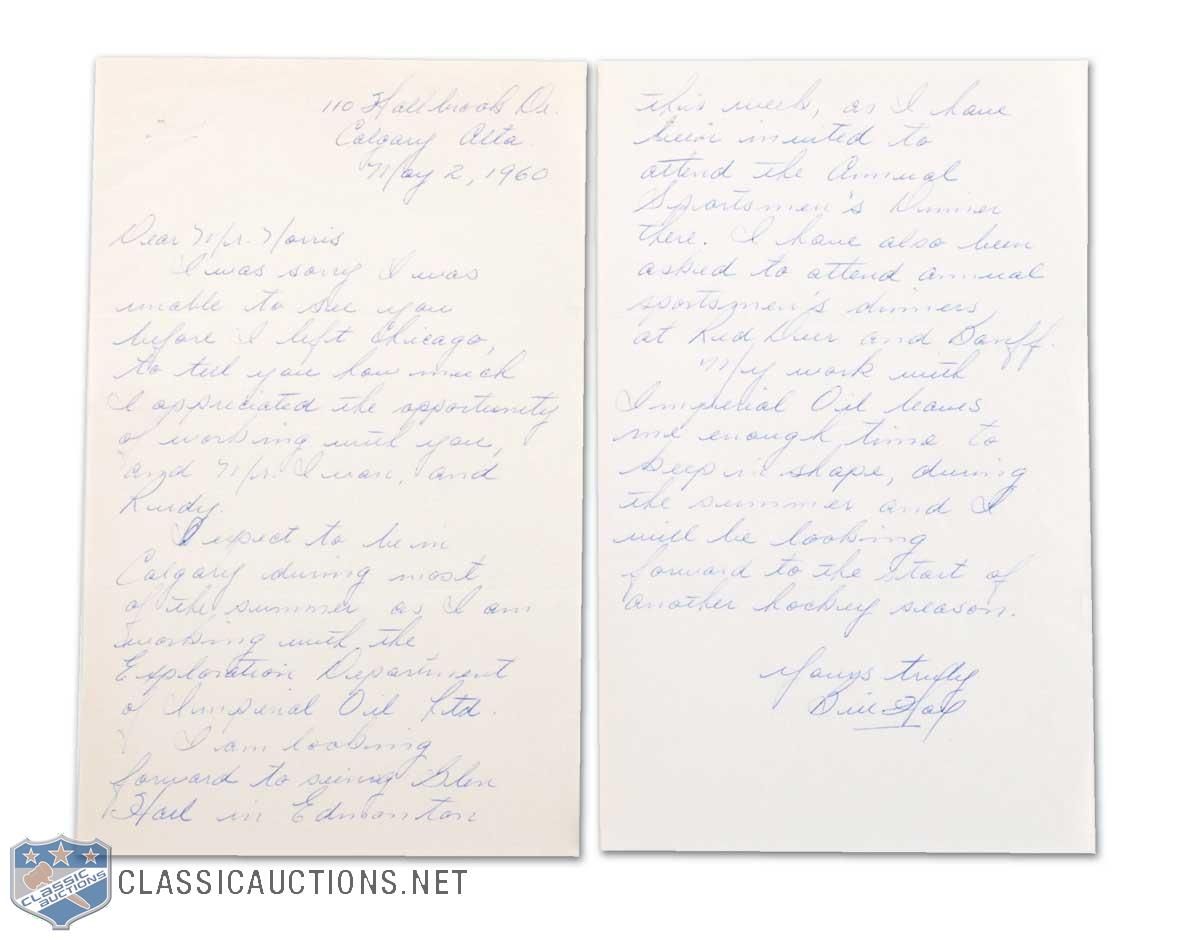 110 Hallbrook Dr.
Calgary Alta.
May 2, 1960
Dear Mr. Norris
I was sorry I was
unable to see you
before I left Chicago,
to tell you how much
I appreciated the opportunity
of working with you,
and Mr. Ivan, and
Rudy.
I expect to be in
Calgary during most
of the summer as I am
working with the
Exploration Department
of Imperial Oil Ltd.
I am looking
forward to seeing Glen
Hall in Edmonton
this week, as I have
been invited to
attend the Annual
Sportsmen's Dinner
there. I have also been
asked to attend annual
sportsmen's dinners
at Red Deer and Banff.
My work with
Imperial Oil leaves
me enough time to
keep in shape, during
the summer and I
will be looking
forward to the start of
another hockey season.
Yours truly
Bill Hay
CLASSIC AUCTIONS
CLASSICAUCTIONS.NET